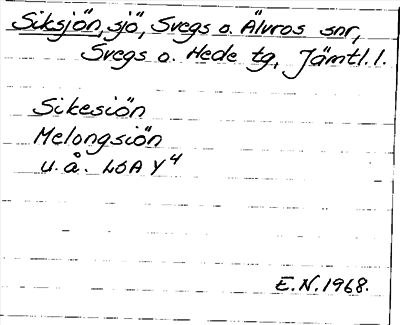 Siksjön, sjö, Svegs o. Älvros snr,
Svegs o. Hede tg, Jämtl. l.
Sikesiön
Melongsiön
u.å. LSA Y4
E.N.1968.